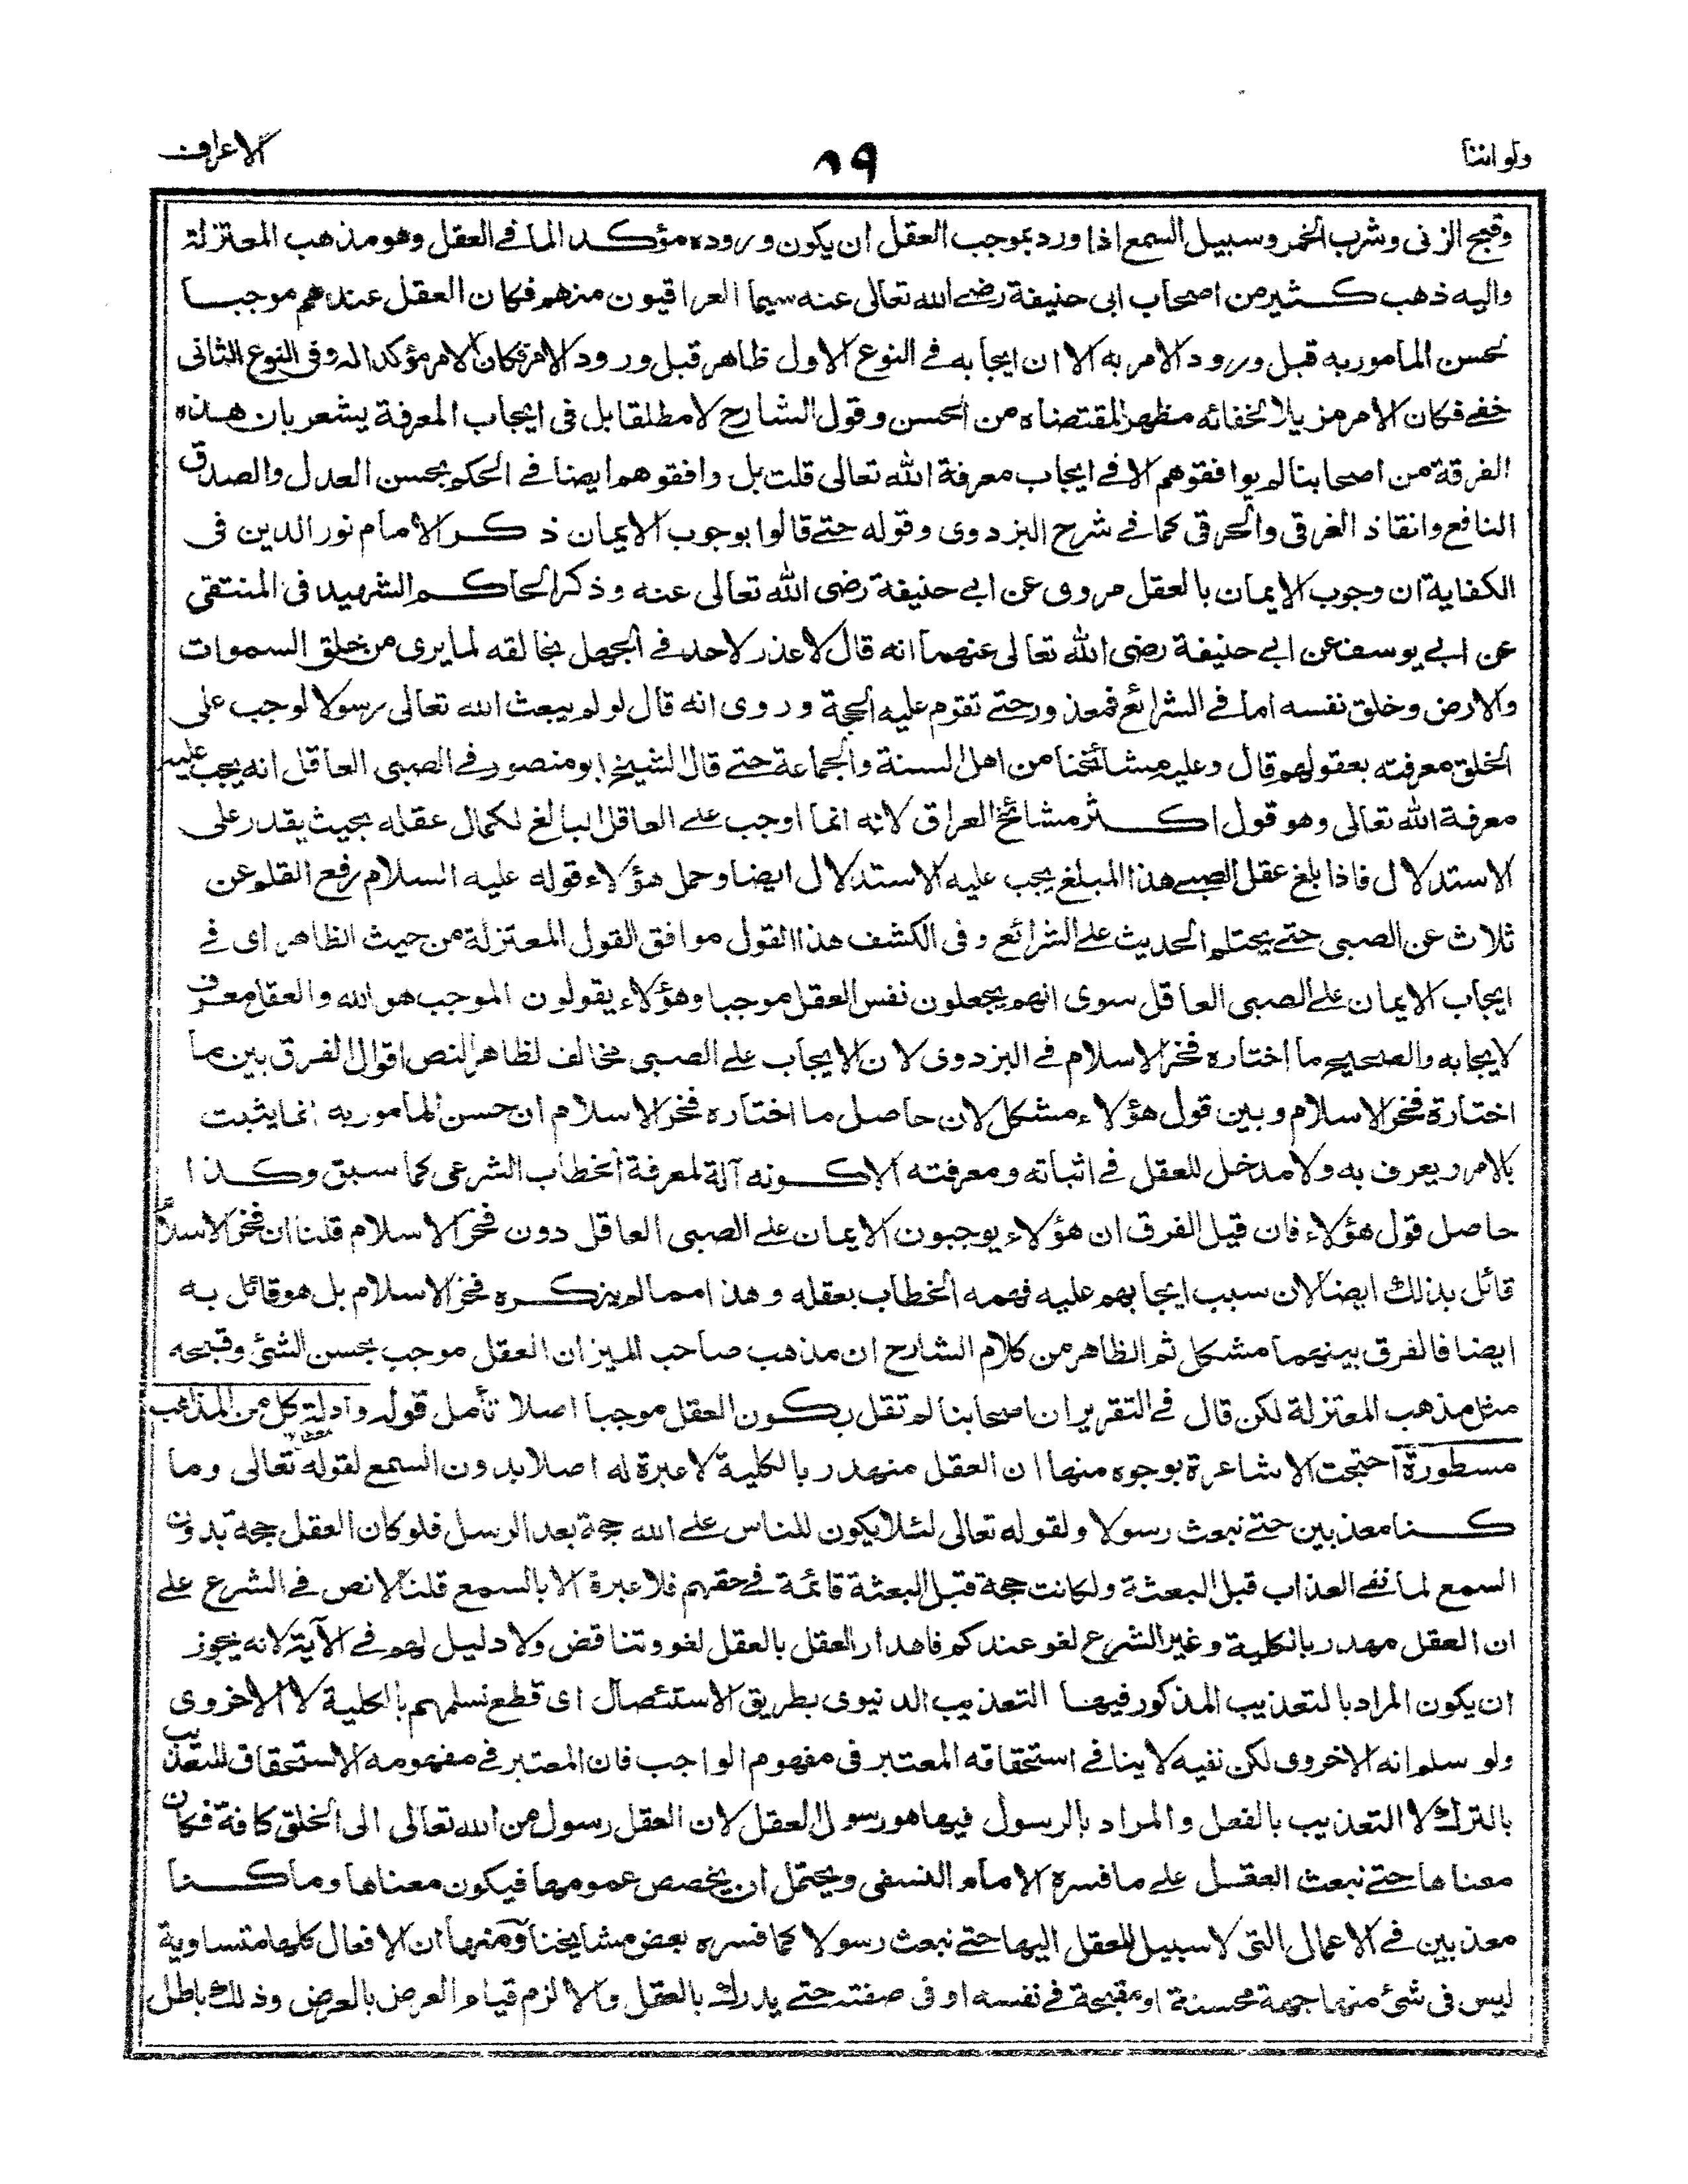 ولو اننا
٨٩
الاعراف
وقبح الزنى وشرب الخمر وسبيل السمع اذا ورد بموجب العقل ان يكون وروده مؤكدا لما في العقل وهو مذهب المعتزلة
واليه ذهب كثير من اصحاب ابى حنيفة رضي الله تعالى عنه سيما العراقيون منهم فكان العقل عندهم موجبا
لحسن المامور به قبل ورود الامر به الا ان ايجابه في النوع الاول ظاهر قبل ورود الامر فكان الامر مؤكدا له وفى النوع الثانى
خفي فكان الامر مزيلا لخفائه مظهرا لمقتضاه من الحسن وقول الشارح لا مطلقا بل فى ايجاب المعرفة يشعر بان هذه
الفرقة من اصحابنا لم يوافقوهم الا في ايجاب معرفة الله تعالى قلت بل وافقوهم ايضا في الحكم بحسن العدل والصدق
النافع وانقاذ الغرقى والحرقى كما في شرح البزدوى وقوله حتى قالوا بوجوب الايمان ذكر الامام نور الدين فى
الكفاية ان وجوب الايمان بالعقل مروى عن ابي حنيفة رضى الله تعالى عنه وذكر الحاكم الشهيد فى المنتقى
عن ابي يوسف عن ابي حنيفة رضى الله تعالى عنهما انه قال لا عذر لاحد في الجهل بخالقه لما يرى من خلق السموات
والارض وخلق نفسه اما في الشرائع فمعذور حتى تقوم عليه الحجة وروى انه قال لو لم يبعث الله تعالى رسولا لوجب على
الخلق معرفته بعقولهم قال وعليه مشائخنا من اهل السنة والجماعة حتى قال الشيخ ابو منصور في الصبى العاقل انه يجب عليه
معرفة الله تعالى وهو قول اكثر مشائخ العراق لانه انما اوجب على العاقل البالغ لكمال عقله بحيث يقدر على
الاستدلال فاذا بلغ عقل الصبي هذا المبلغ يجب عليه الاستدلال ايضا وحمل هؤلاء قوله عليه السلام رفع القلم عن
ثلاث عن الصبى حتى يحتلم الحديث على الشرائع وفى الكشف هذا القول موافق القول المعتزلة من حيث الظاهر اى في
ايجاب الايمان على الصبى العاقل سوى انهم يجعلون نفس العقل موجبا وهؤلاء يقولون الموجب هو الله والعقل معرف
لايجابه والصحيح ما اختاره فخر الاسلام في البزدوى لان الايجاب على الصبى مخالف لظاهر النص اقول الفرق بين ما
اختارة فخر الاسلام وبين قول هؤلاء مشكل لان حاصل ما اختاره فخر الاسلام ان حسن المامور به انما يثبت
بالامر ويعرف به ولا مدخل للعقل في اثباته ومعرفته الا كونه آلة لمعرفة الخطاب الشرعى كما سبق وكذا
حاصل قول هؤلاء فان قيل الفرق ان هؤلاء يوجبون الايمان على الصبى العاقل دون فخر الاسلام قلنا ان فخر الاسلام
قائل بذلك ايضا لان سبب ايجابهم عليه فهمه الخطاب بعقله وهذا مما لم ينكره فخر الاسلام بل هو قائل به
ايضا فالفرق بينهما مشكل ثم الظاهر من كلام الشارح ان مذهب صاحب الميزان العقل موجب بحسن الشئ وقبحه
مثل مذهب المعتزلة لكن قال في التقرير ان اصحابنا لم تقل بكون العقل موجبا اصلا تأمل قوله وادلة كل من المذاهب
مسطورة احتجت الاشاعرة بوجوه منها ان العقل منهدر بالكلية لا عبرة له اصلا بدون السمع لقوله تعالى وما
كنا معذبين حتى نبعث رسولا ولقوله تعالى لئلا يكون للناس على الله حجة بعد الرسل فلو كان العقل حجة بدون
السمع لما نفى العذاب قبل البعثة ولكانت حجة قبل البعثة قائمة في حقهم فلا عبرة الا بالسمع قلنا لا نص في الشرع على
ان العقل مهدر بالكلية وغير الشرع لغو عندكم فاهدار العقل بالعقل لغو وتناقض ولا دليل لهم في الآية لانه يجوز
ان يكون المراد بالتعذيب المذكور فيها التعذيب الدنيوى بطريق الاستئصال اى قطع نسلهم بالكلية لا الاخروى
ولو سلم انه الاخروى لكن نفيه لا ينافي استحقاقه المعتبر فى مفهوم الواجب فان المعتبر في مفهومه الاستحقاق للتعذيب
بالترك لا التعذيب بالفعل والمراد بالرسول فيها هو رسول العقل لان العقل رسول من الله تعالى الى الخلق كافة فكان
معناها حتى نبعث العقل على ما فسره الامام النسفى ويحتمل ان يخصص عمومها فيكون معناها وما كنا
معذبين في الاعمال التى لا سبيل للعقل اليها حتى نبعث رسولا كما فسره بعض مشايخنا ومنها ان الافعال كلها متساوية
ليس فى شئ منها جهة محسنة او مقبحة في نفسه او فى صفته حتى يدرك بالعقل والا لزم قيام العرض بالعرض وذلك باطل